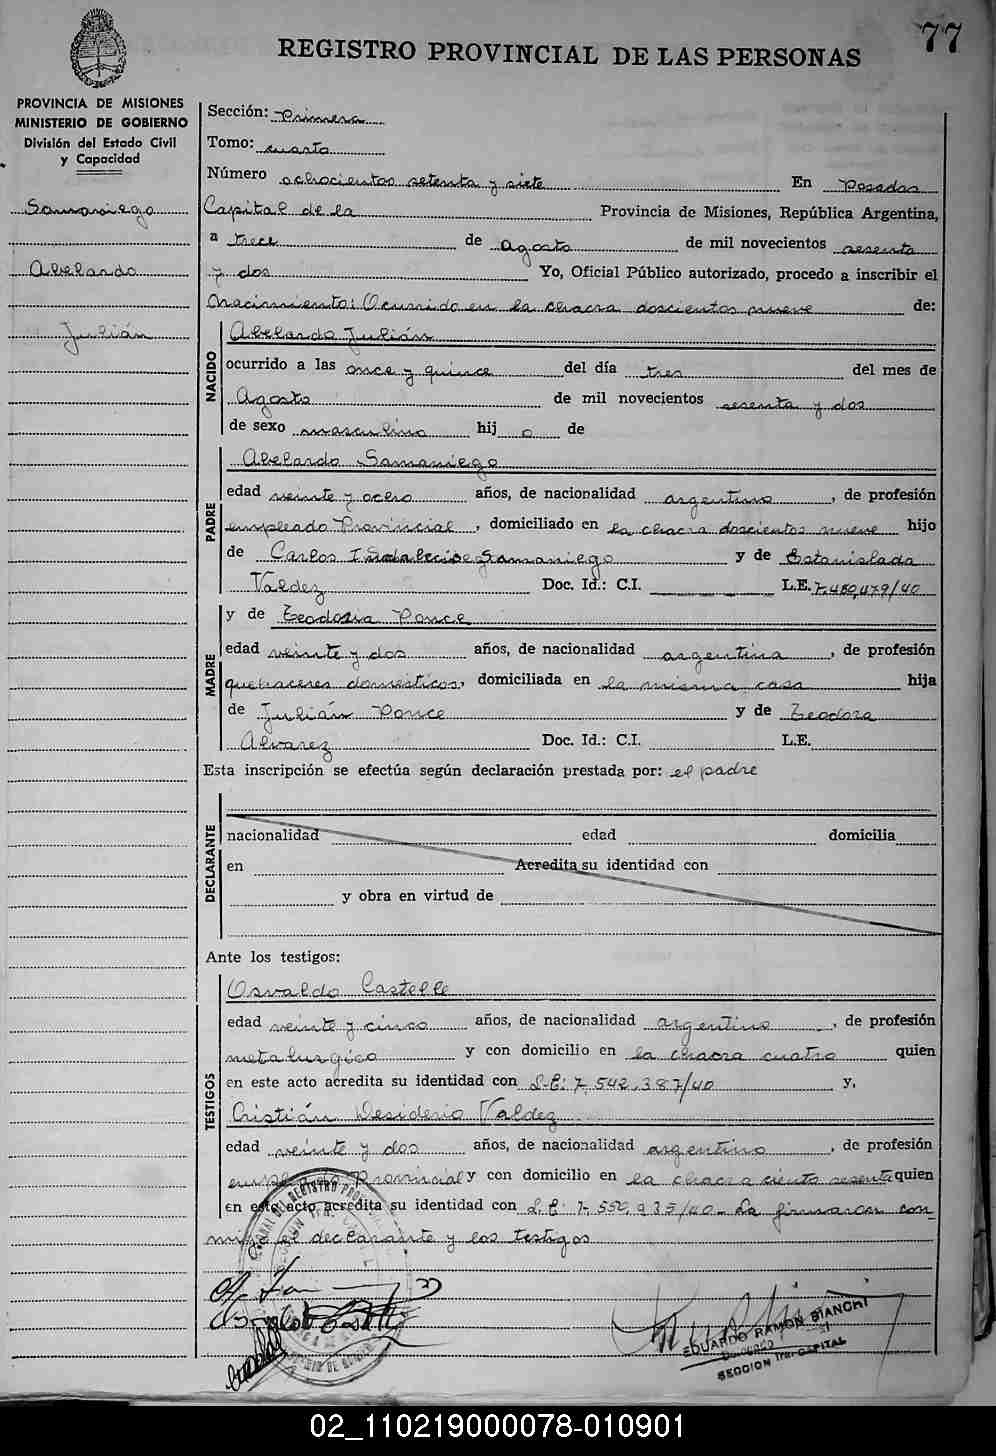 77
REGISTRO PROVINCIAL DE LAS PERSONAS
PROVINCIA DE MISIONES
MINISTERIO DE GOBIERNO
División del Estado Civil
y Capacidad
Samaniego
Abelardo
Julián
Sección: Primera
Tomo: cuarto
Número ochocientos setenta y siete En Posadas
Capital de la Provincia de Misiones, República Argentina,
a trece de Agosto de mil novecientos sesenta
y dos Yo, Oficial Público autorizado, procedo a inscribir el
Nacimiento: Ocurrido en la chacra doscientos nueve de:
NACIDO
Abelardo Julián
ocurrido a las once y quince del día tres del mes de
Agosto de mil novecientos sesenta y dos
de sexo masculino hij o de
PADRE
Abelardo Samaniego
edad veinte y ocho años, de nacionalidad argentino, de profesión
empleado Provincial, domiciliado en la chacra doscientos nueve hijo
de Carlos Samaniego y de Estanislada
Valdez Doc. Id.: C.I. L.E. 7.480,479/40
MADRE
y de Teodosia Ponce
edad veinte y dos años, de nacionalidad argentina, de profesión
quehaceres domésticos, domiciliada en la misma casa hija
de Julián Ponce y de Teodora
Alvarez Doc. Id.: C.I. L.E.
Esta inscripción se efectúa según declaración prestada por: el padre
DECLARANTE
nacionalidad edad domicilia
en Acredita su identidad con
y obra en virtud de
Ante los testigos:
TESTIGOS
Osvaldo Castelle
edad veinte y cinco años, de nacionalidad argentino, de profesión
metalurgico y con domicilio en la chacra cuatro quien
en este acto acredita su identidad con L.E: 7.542.387/40 y,
Cristián Desiderio Valdez
edad veinte y dos años, de nacionalidad argentino, de profesión
empleado Provincial y con domicilio en la chacra ciento sesenta quien
en este acto acredita su identidad con L.E: 7.552.935/40- La firmaron con
migo el declarante y los testigos
EDUARDO RAMON BIANCHI
SECCION 1ra. CAPITAL
02_110219000078-010901